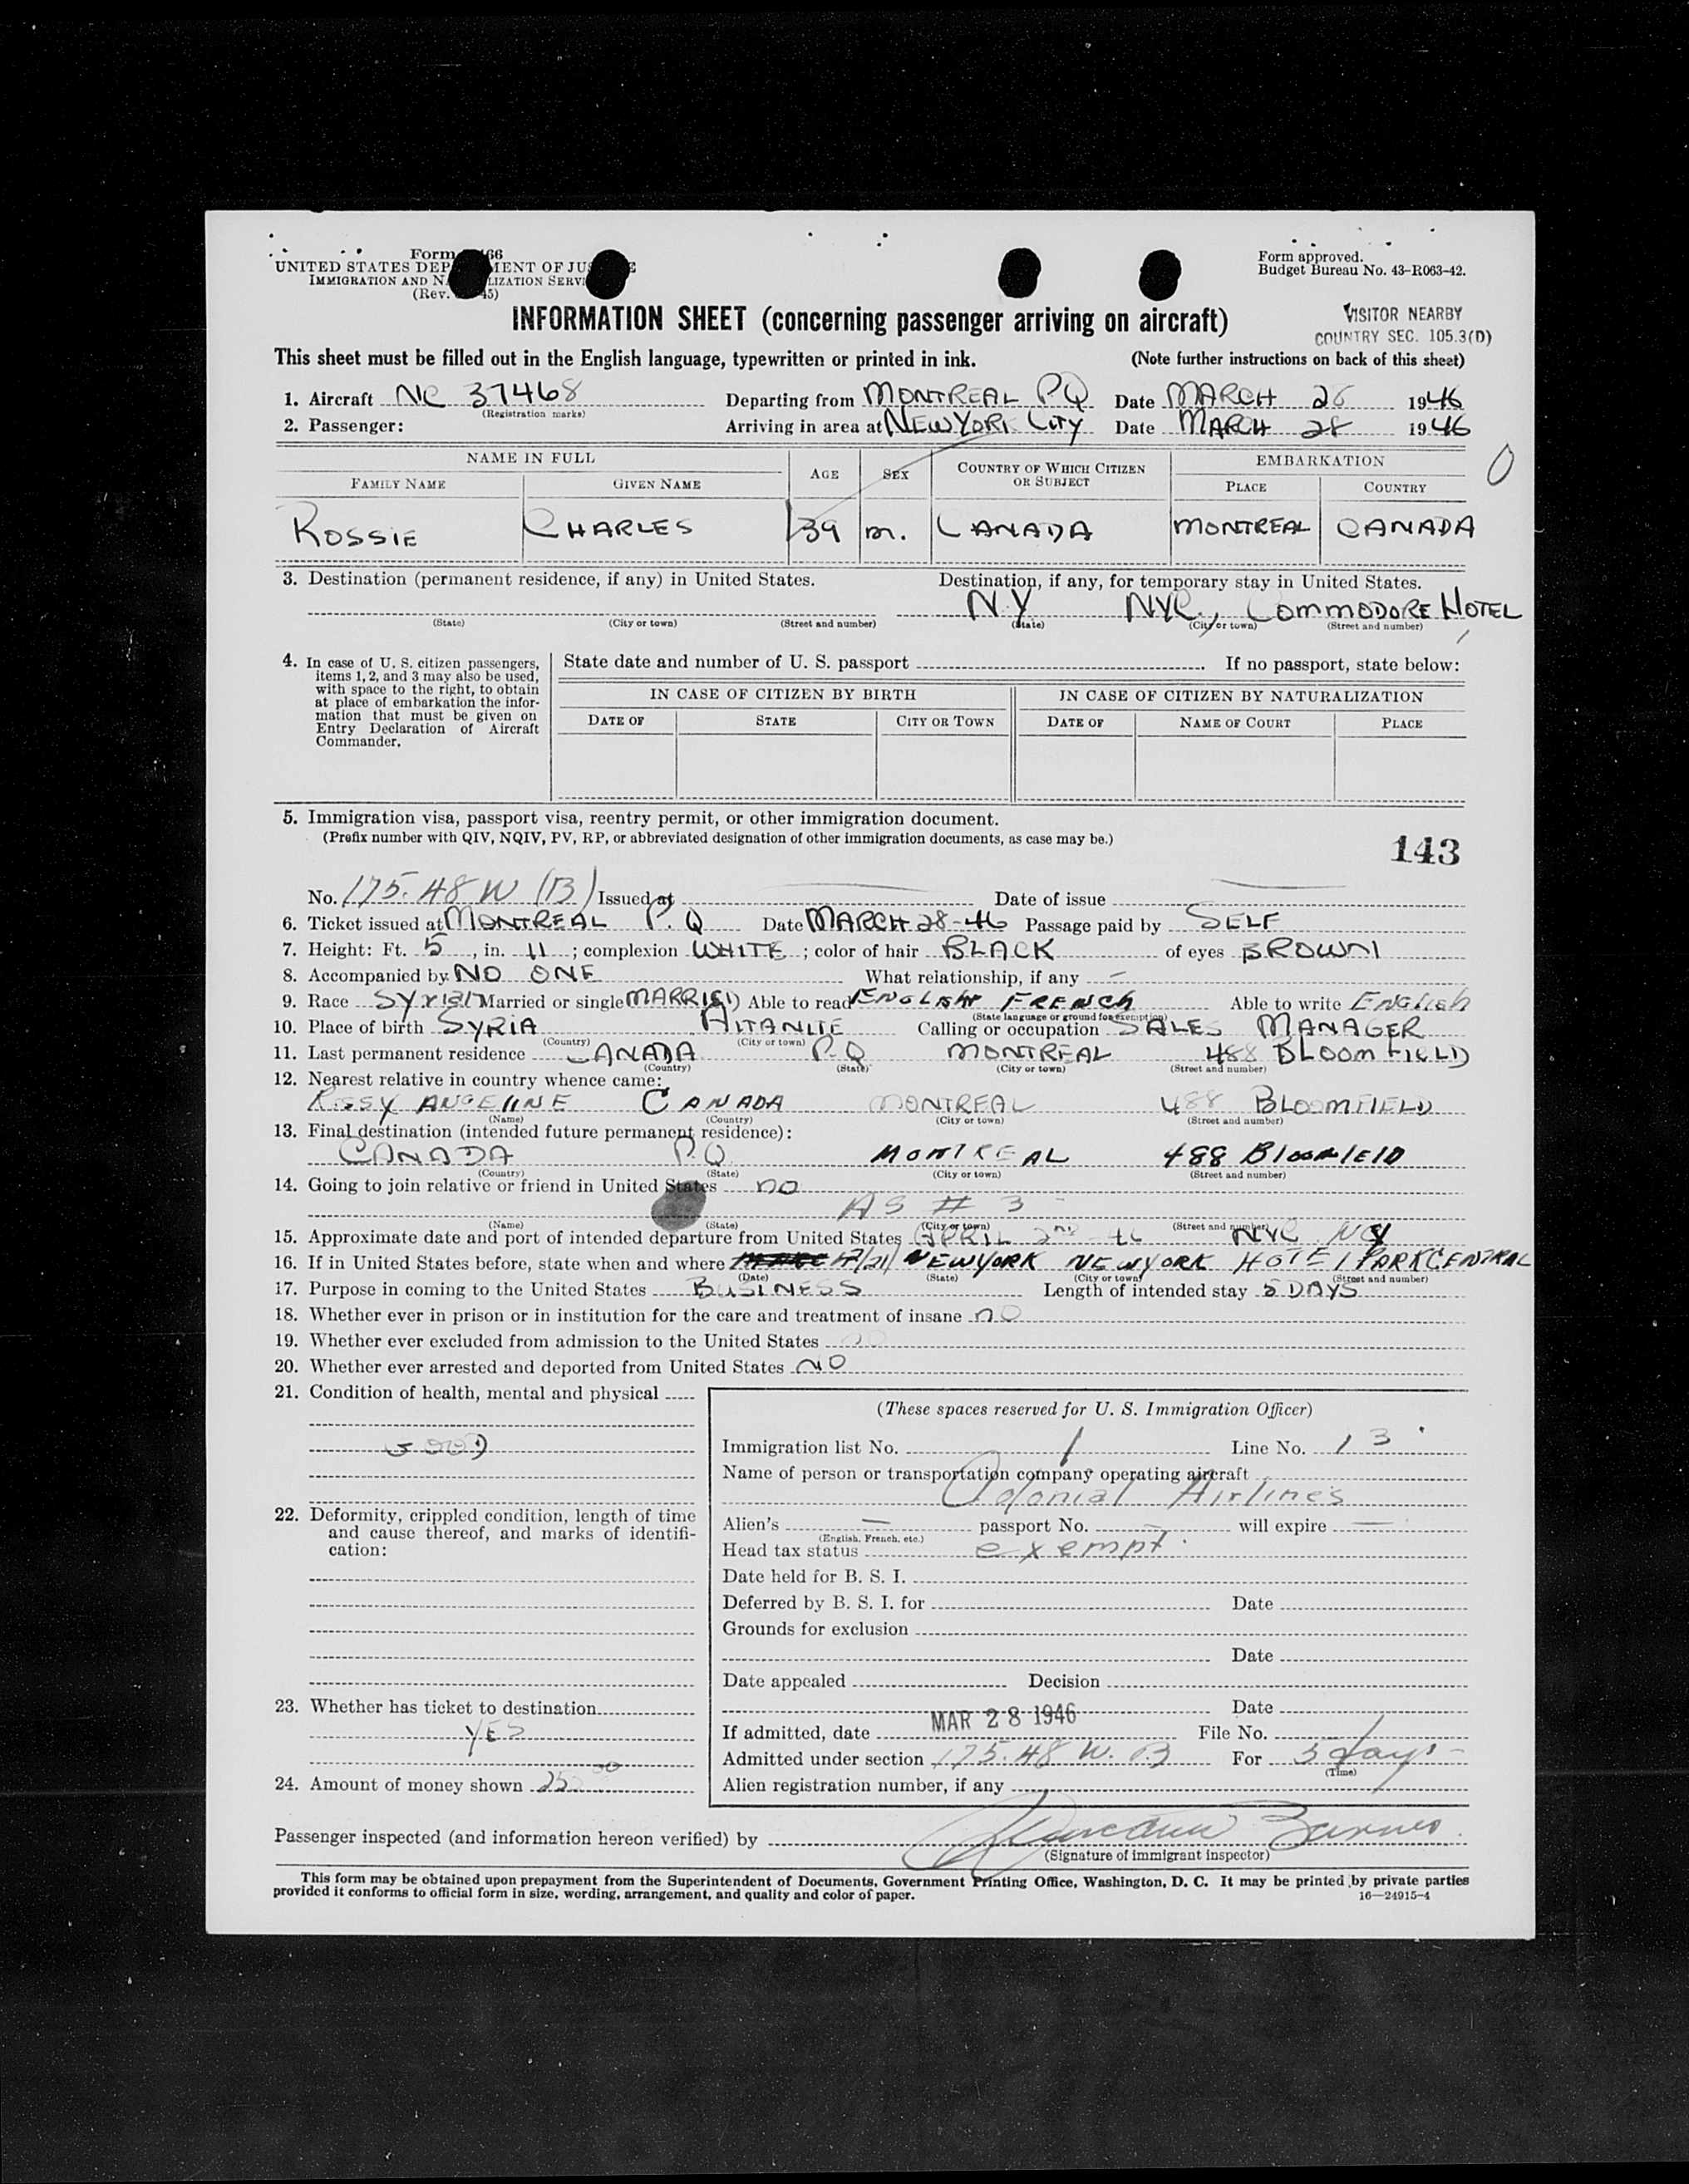 Form 66
UNITED STATES DEP MENT OF JU E
IMMIGRATION AND NA LIZATION SERVI
(Rev. 45)
Form approved.
Budget Bureau No. 43-R063-42.
INFORMATION SHEET (concerning passenger arriving on aircraft)
VISITOR NEARBY
COUNTRY SEC. 105.3(D)
This sheet must be filled out in the English language, typewritten or printed in ink. (Note further instructions on back of this sheet)
1. Aircraft NC 37468 Departing from MONTREAL PQ Date MARCH 28 1946
(Registration marks)
2. Passenger: Arriving in area at NEW YORK CITY Date MARCH 28 1946
NAME IN FULL AGE SEX COUNTRY OF WHICH CITIZEN OR SUBJECT EMBARKATION 0
FAMILY NAME GIVEN NAME PLACE COUNTRY
ROSSIE CHARLES 39 M. CANADA MONTREAL CANADA
3. Destination (permanent residence, if any) in United States. Destination, if any, for temporary stay in United States.
N.Y NYC, COMMODORE HOTEL
(State) (City or town) (Street and number) (State) (City or town) (Street and number)
4. In case of U. S. citizen passengers,
items 1, 2, and 3 may also be used,
with space to the right, to obtain
at place of embarkation the infor-
mation that must be given on
Entry Declaration of Aircraft
Commander.
State date and number of U. S. passport . If no passport, state below:
IN CASE OF CITIZEN BY BIRTH IN CASE OF CITIZEN BY NATURALIZATION
DATE OF STATE CITY OR TOWN DATE OF NAME OF COURT PLACE
5. Immigration visa, passport visa, reentry permit, or other immigration document.
(Prefix number with QIV, NQIV, PV, RP, or abbreviated designation of other immigration documents, as case may be.)
143
No. 175.48 W (B) Issued at Date of issue
6. Ticket issued at MONTREAL P.Q Date MARCH 28-46 Passage paid by SELF
7. Height: Ft. 5, in. 11; complexion WHITE; color of hair BLACK of eyes BROWN
8. Accompanied by NO ONE What relationship, if any -
9. Race SYRIAN Married or single MARRIED Able to read ENGLISH FRENCH Able to write ENGLISH
(State language or ground for exemption)
10. Place of birth SYRIA AITANITE Calling or occupation SALES MANAGER
(Country) (City or town)
11. Last permanent residence CANADA P.Q MONTREAL 488 BLOOMFIELD
(Country) (State) (City or town) (Street and number)
12. Nearest relative in country whence came:
ROSSY ANGELINE CANADA MONTREAL 488 BLOOMFIELD
(Name) (Country) (City or town) (Street and number)
13. Final destination (intended future permanent residence):
CANADA P.Q. MONTREAL 488 BLOOMFIELD
(Country) (State) (City or town) (Street and number)
14. Going to join relative or friend in United States NO
AS # 3
(Name) (State) (City or town) (Street and number)
15. Approximate date and port of intended departure from United States APRIL 2nd 46 NYC NY
16. If in United States before, state when and where NEW YORK NEW YORK HOTEL PARK CENTRAL
(Date) (State) (City or town) (Street and number)
17. Purpose in coming to the United States BUSINESS Length of intended stay 5 DAYS
18. Whether ever in prison or in institution for the care and treatment of insane NO
19. Whether ever excluded from admission to the United States NO
20. Whether ever arrested and deported from United States NO
21. Condition of health, mental and physical
GOOD
22. Deformity, crippled condition, length of time
and cause thereof, and marks of identifi-
cation:
23. Whether has ticket to destination
YES
24. Amount of money shown 25 00
(These spaces reserved for U. S. Immigration Officer)
Immigration list No. 1 Line No. 13
Name of person or transportation company operating aircraft
Colonial Airlines
Alien's — passport No. — will expire —
(English, French, etc.)
Head tax status exempt.
Date held for B. S. I.
Deferred by B. S. I. for Date
Grounds for exclusion
Date
Date appealed Decision
Date
If admitted, date MAR 28 1946 File No.
Admitted under section 175.48 W. B For 5 days
(Time)
Alien registration number, if any
Passenger inspected (and information hereon verified) by
(Signature of immigrant inspector)
This form may be obtained upon prepayment from the Superintendent of Documents, Government Printing Office, Washington, D. C. It may be printed by private parties
provided it conforms to official form in size, wording, arrangement, and quality and color of paper. 16—24915-4